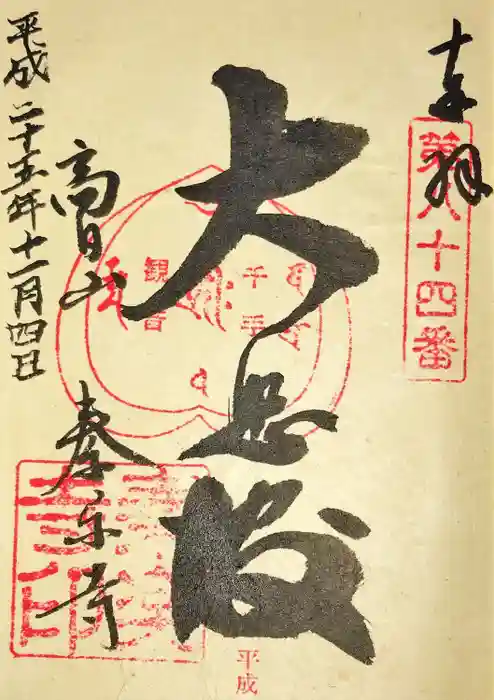 奉拝
第八十四番
大悲殿
千手
観音
平成
高日山
秦楽寺
平成二十五年十一月四日